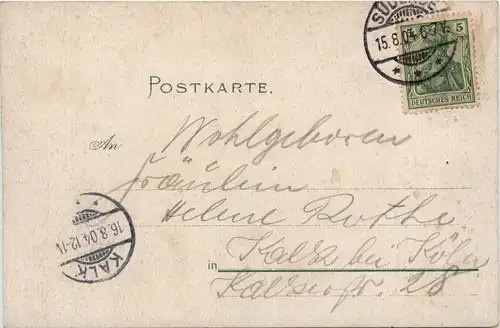 15.8.04.6-7V.
5
DEUTSCHES REICH
POSTKARTE.
An Wohlgeboren
Fräulein
Helene Rothe
16.8.04.12-1V.
KALK
in Kalk bei Köln
28